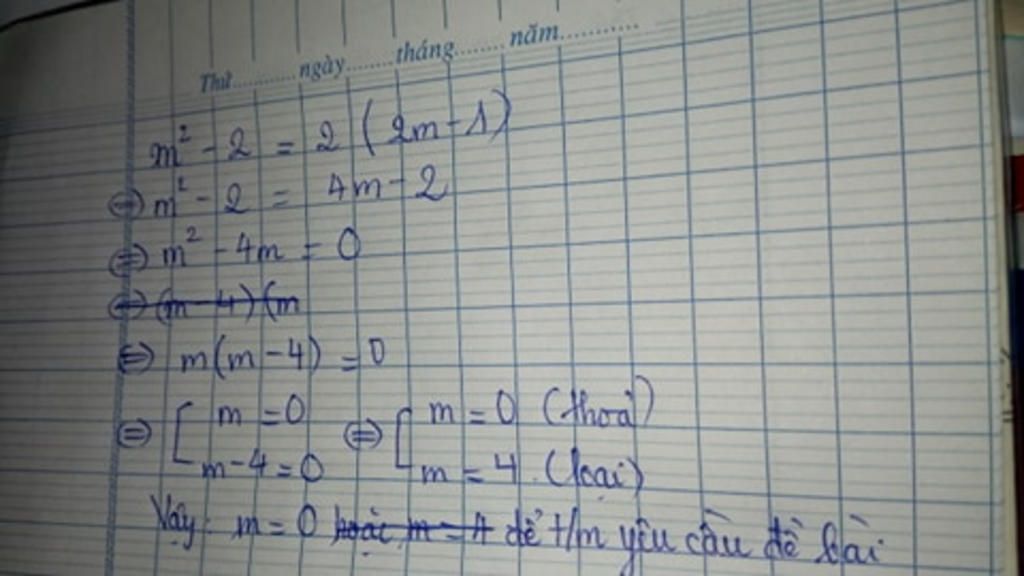 Thứ............ngày........tháng........năm............
m² - 2 = 2 (2m - 1)
⇔ m² - 2 = 4m - 2
⇔ m² - 4m = 0
⇔ (m - 4)(m
⇔ m(m - 4) = 0
⇔ [ m = 0 ⇔ [ m = 0 (thoả)
m - 4 = 0 m = 4 (loại)
Vậy: m = 0 hoặc m = 4 để t/m yêu cầu đề bài